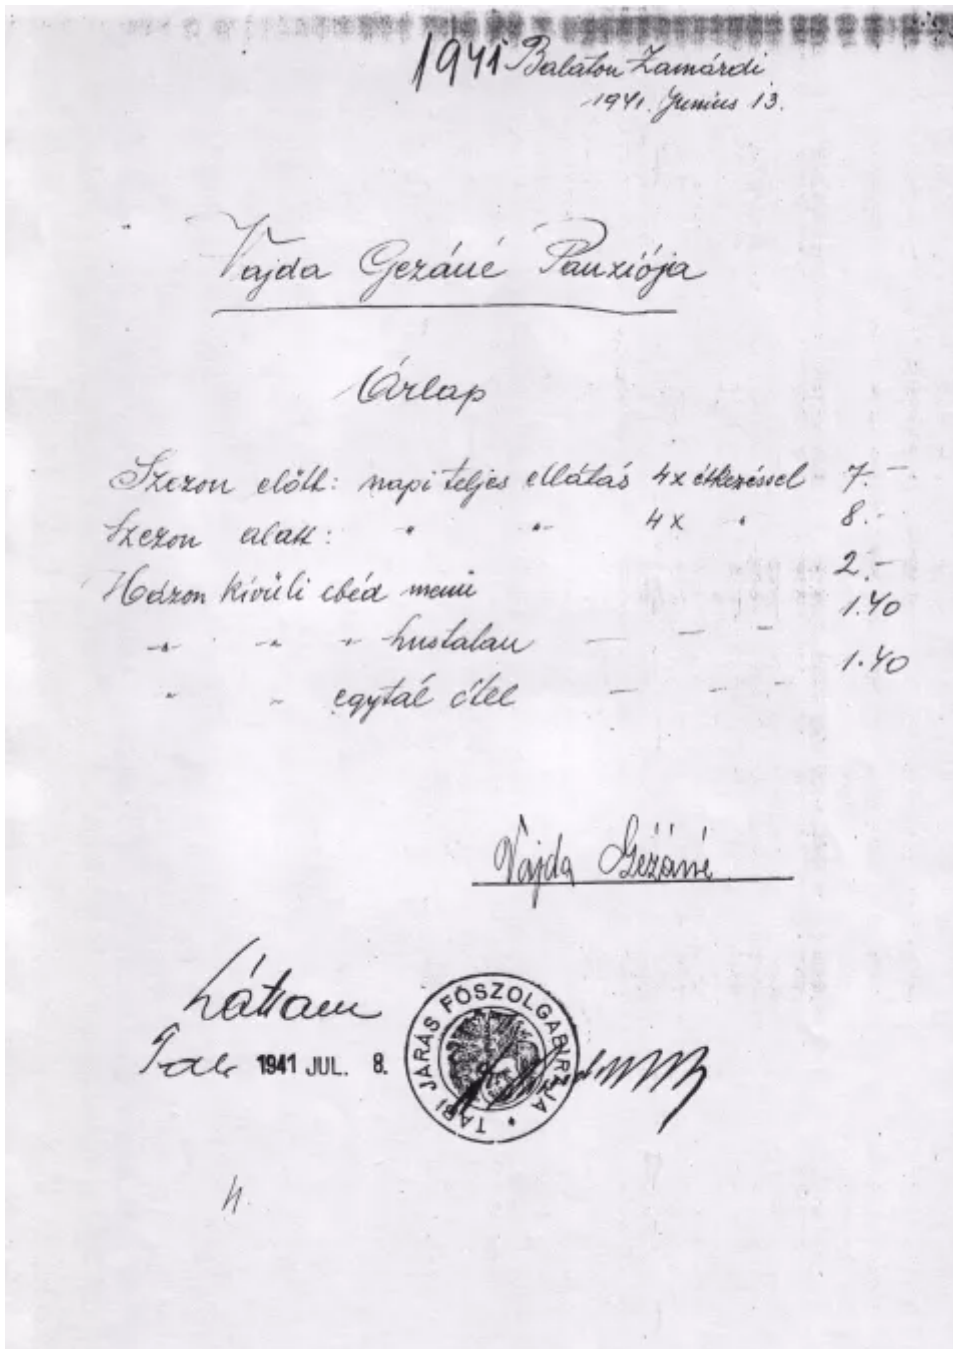 1941 Balaton Zamárdi
1941. Junius 13.
Vajda Gezáné Panziója
Árlap
Szezon előtt: napi teljes ellátás 4x étkezéssel 7.-
Szezon alatt: " " 4x " 8.-
Házon kívüli ebéd menü 2.-
" " " hustalan - - - 1.40
" " egytál étel - - - 1.40
Vajda Gézáné
Láttam
Tab 1941 JUL. 8.
TABI JÁRÁS FŐSZOLGABIRÁJA